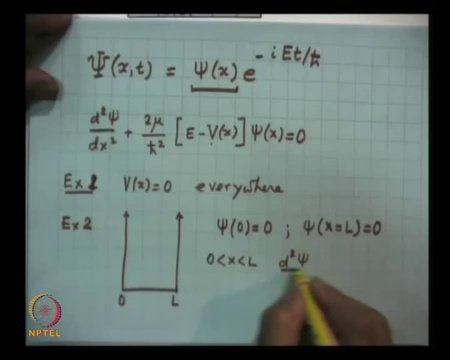 Ψ(x,t) = ψ(x) e^{-iEt/ħ}
d²ψ/dx² + 2μ/ħ² [E-V(x)] ψ(x)=0
Ex 1 V(x)=0 everywhere
Ex 2 ψ(0)=0 ; ψ(x=L)=0
0<x<L d²ψ
0 L
NPTEL